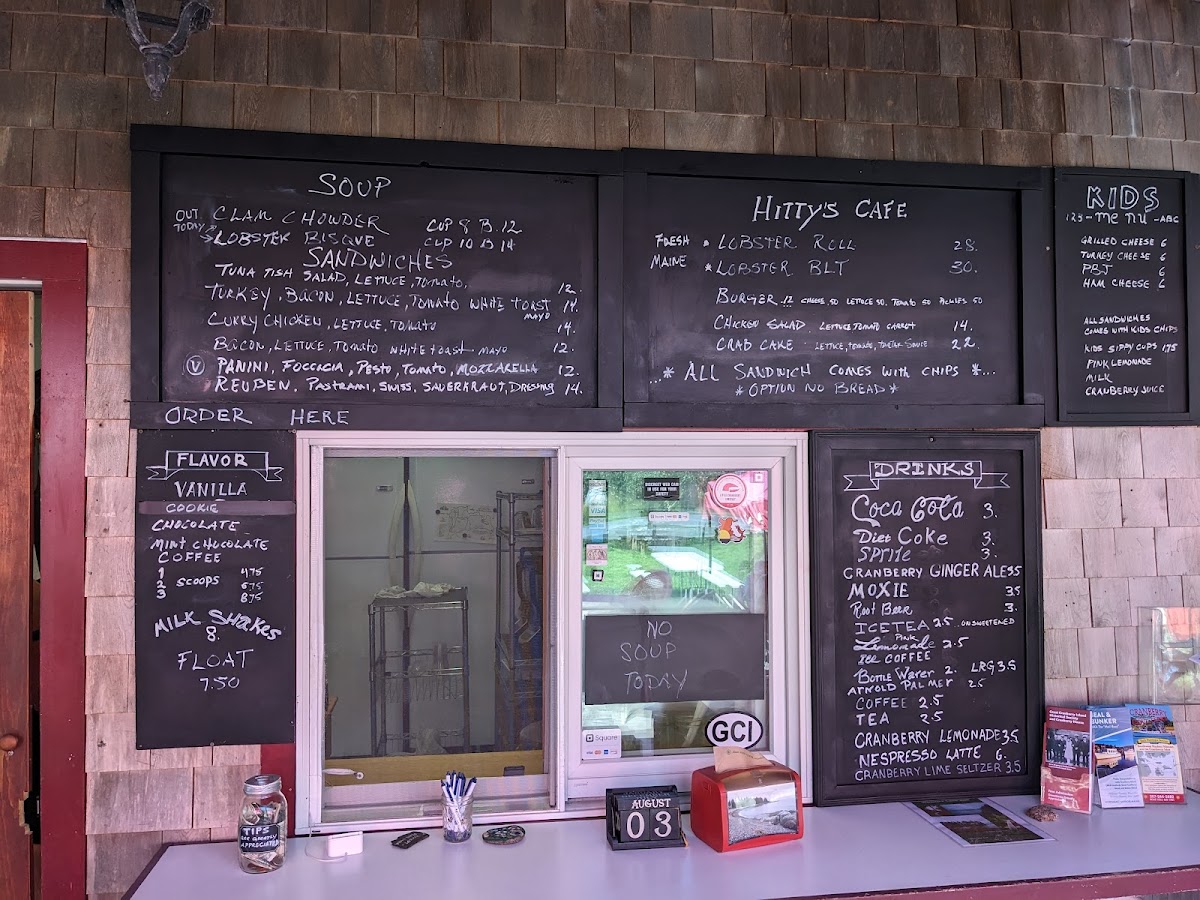 SOUP
OUT TODAY
CLAM CHOWDER CUP 8 B. 12
LOBSTER BISQUE CUP 10 B 14
SANDWICHES
TUNA FISH SALAD, LETTUCE, TOMATO, 12.
TURKEY, BACON, LETTUCE, TOMATO WHITE TOAST MAYO 14.
CURRY CHICKEN, LETTUCE, TOMATO 14.
BACON, LETTUCE, TOMATO WHITE TOAST MAYO 12.
V PANINI, FOCCACIA, PESTO, TOMATO, MOZZARELLA 12.
REUBEN, PASTRAMI, SWISS, SAUERKRAUT, DRESSING 14.
ORDER HERE
HITTY'S CAFE
FRESH MAINE
* LOBSTER ROLL 28.
* LOBSTER BLT 30.
BURGER .12 CHEESE .50 LETTUCE 50, TOMATO 50 PICKLES 50
CHICKEN SALAD. LETTUCE TOMATO CARROT 14.
CRAB CAKE LETTUCE, TOMATO, TARTAR SAUCE 22.
...* ALL SANDWICH COMES WITH CHIPS *...
* OPTION NO BREAD *
KIDS
123 - MENU - ABC
GRILLED CHEESE 6
TURKEY CHEESE 6
PBJ 6
HAM CHEESE 6
ALL SANDWICHES
COMES WITH KIDS CHIPS
KIDS SIPPY CUPS 1.75
PINK LEMONADE
MILK
CRANBERRY JUICE
FLAVOR
VANILLA
COOKIE
CHOCOLATE
MINT CHOCOLATE
COFFEE
1 4.75
2 SCOOPS 6.75
3 8.75
MILK SHAKES
8.
FLOAT
7.50
NO
SOUP
TODAY
GCI
Square
VISA
DRINKS
Coca Cola 3.
Diet Coke 3.
SPRITE 3.
CRANBERRY GINGER ALE 3.5
MOXIE 3.5
Root Beer 3.
ICE TEA 2.5 .. UNSWEETENED
Pink
Lemonade 2.5
ICE COFFEE
Bottle Water 2. LRG 3.5
ARNOLD PALMER 2.5
COFFEE 2.5
TEA 2.5
CRANBERRY LEMONADE 3.5
NESPRESSO LATTE 6.
CRANBERRY LIME SELTZER 3.5
TIPS
ARE GREATLY
APPRECIATED
AUGUST
03